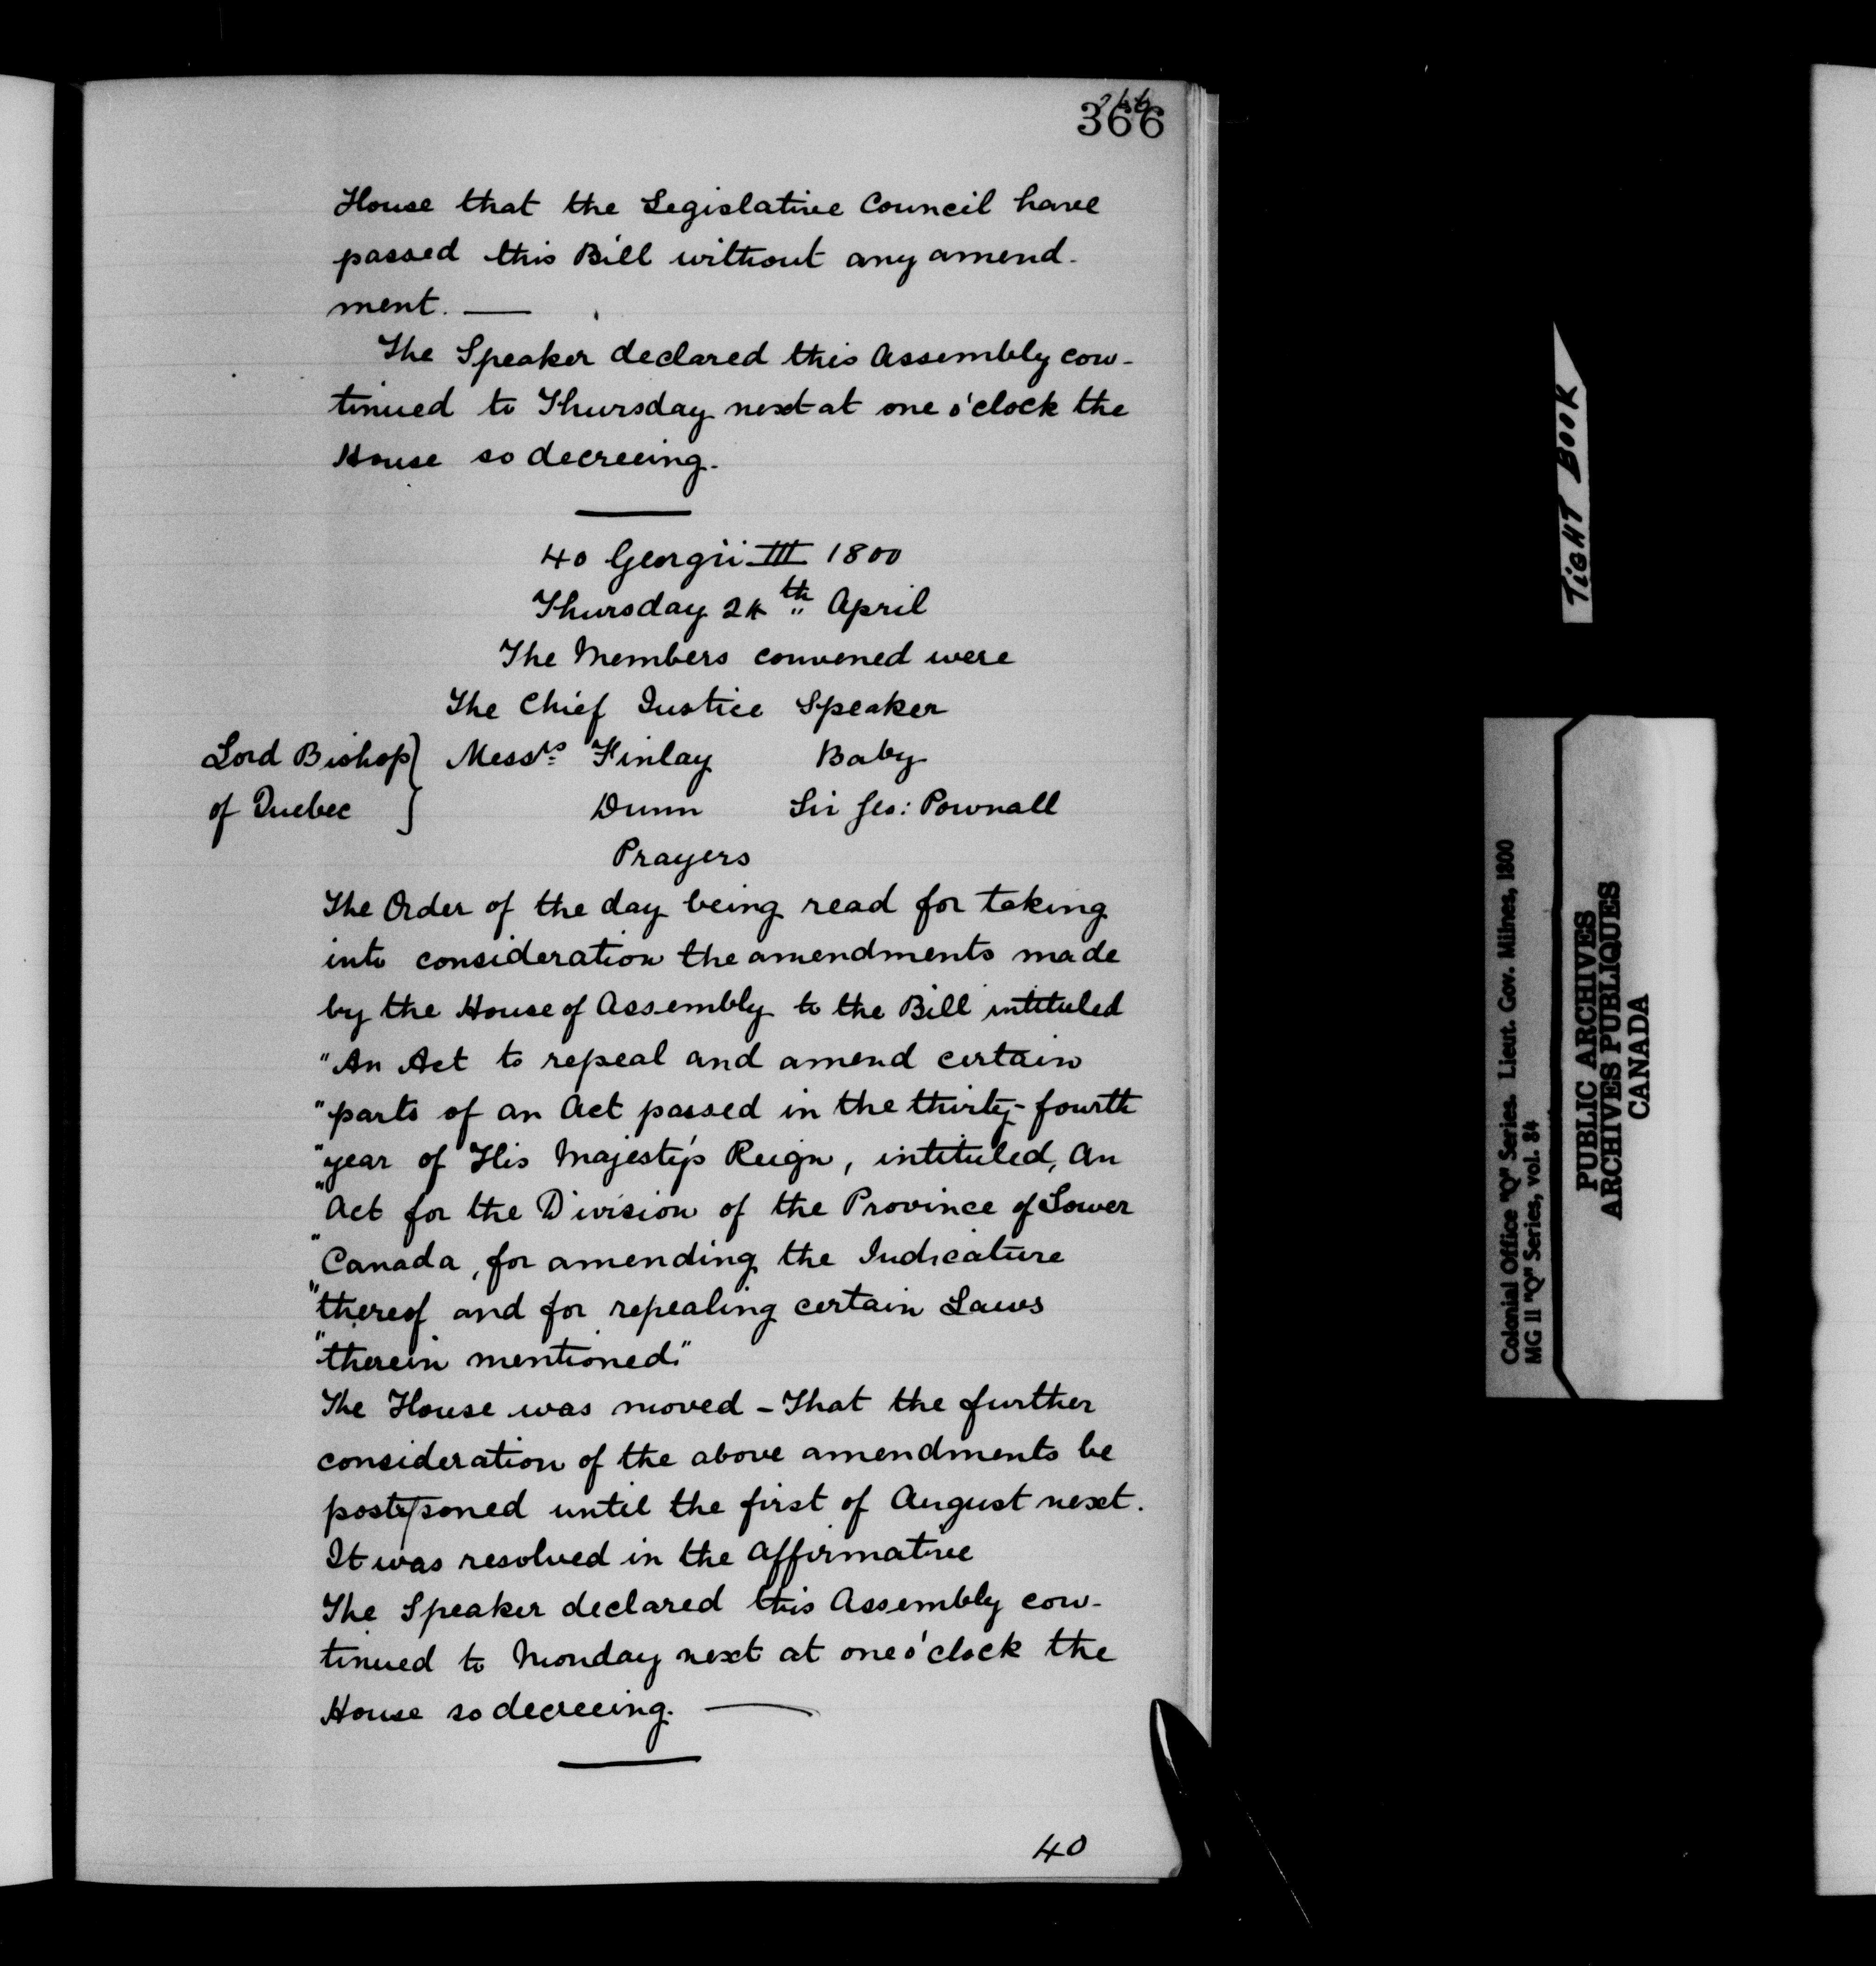 366
House that the Legislative Council have
passed this Bill without any amend-
ment. —
The Speaker declared this Assembly con-
tinued to Thursday next at one o'clock the
House so decreeing.
40 Georgii III 1800
Thursday 24th April
The Members convened were
The Chief Justice Speaker
Lord Bishop } Messrs Finlay Baby
of Quebec } Dunn Sir Geo: Pownall
Prayers
The Order of the day being read for taking
into consideration the amendments made
by the House of Assembly to the Bill intituled
"An Act to repeal and amend certain
"parts of an Act passed in the thirty-fourth
"year of His Majesty's Reign, intituled, An
"Act for the Division of the Province of Lower
"Canada, for amending the Judicature
"thereof and for repealing certain Laws
"therein mentioned."
The House was moved – That the further
consideration of the above amendments be
postponed until the first of August next.
It was resolved in the affirmative
The Speaker declared this Assembly con-
tinued to Monday next at one o'clock the
House so decreeing. —
40
TIGHT BOOK
Colonial Office "Q" Series. Lieut. Gov. Milnes, 1800
MG 11 "Q" Series, vol. 84
PUBLIC ARCHIVES
ARCHIVES PUBLIQUES
CANADA